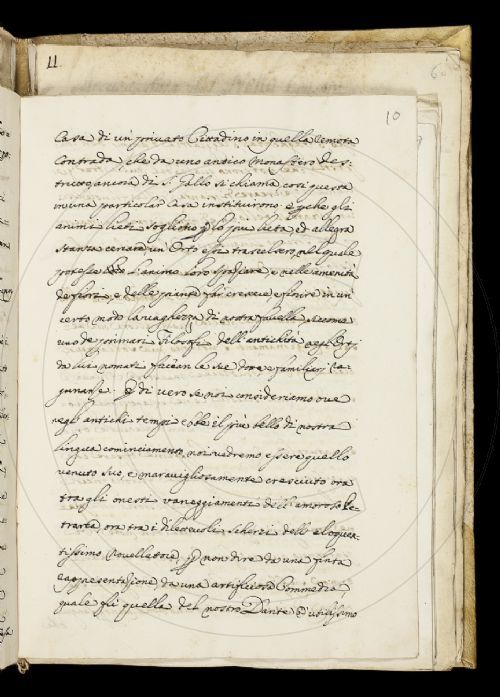 11
6
10
Casa di un privato Cittadino in quella remota
Contrada, che da uno antico Monastero des:
trutto ancora di S. Gallo si chiama, così questa
in una particolar Casa instituirono e pche gli
animi lieti sogliono p lo piu lieta, ed allegra
stanza cercare un Orto essi trascelsero, nel quale
potesse l'animo loro spaziare, e nelle amenità
de fiori, e delle piante far crescere e fiorire in un
certo modo la vaghezza di nostra favella, siccome
uno de primari Filosofi dell'antichità negl'Orti
da lui nomati facean le sue dotte e familiari ra:
gunanze. E di vero se noi consideriamo ove
negli antichi tempi ebbe il più bello di nostra
lingua cominciamento, noi vedremo essere quello
venuto suo, e maravigliosamente cresciuto ora
tra gli onesti vaneggiamenti dell'amoroso Pe
trarca, ora tra i dilettevoli scherzi dell'eloquen
tissimo Novellatore, p non dire da una finta
rappresentazione da una artifiziosa Commedia,
quale fù quella del nostro Dante. E utilissimo